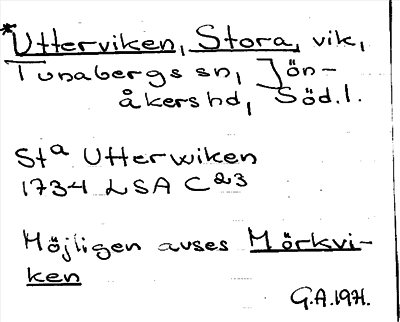 *Utterviken, Stora, vik,
Tunabergs sn, Jön-
åkers hd, Söd.l.
Sta Utterwiken
1734 LSA C23
Möjligen avses Mörkvi-
ken
G.A. 1971.